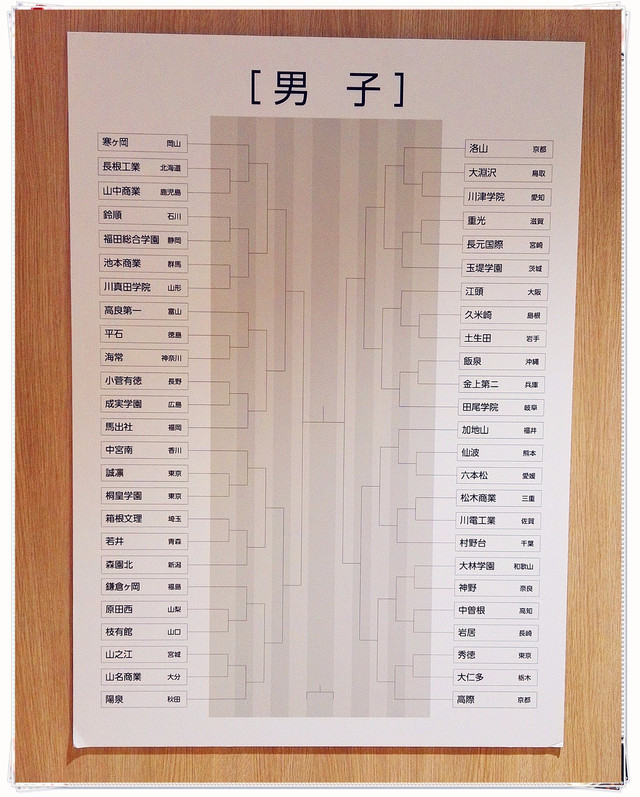 [男 子]
寒ヶ岡 岡山
長根工業 北海道
山中商業 鹿児島
鈴順 石川
福田総合学園 静岡
池本商業 群馬
川真田学院 山形
高良第一 富山
平石 徳島
海常 神奈川
小菅有徳 長野
成実学園 広島
馬出社 福岡
中宮南 香川
誠凛 東京
桐皇学園 東京
箱根文理 埼玉
若井 青森
森園北 新潟
鎌倉ヶ岡 福島
原田西 山梨
枝有館 山口
山之江 宮城
山名商業 大分
陽泉 秋田
洛山 京都
大淵沢 鳥取
川津学院 愛知
重光 滋賀
長元国際 宮崎
玉堤学園 茨城
江頭 大阪
久米崎 島根
土生田 岩手
飯泉 沖縄
金上第二 兵庫
田尾学院 岐阜
加地山 福井
仙波 熊本
六本松 愛媛
松木商業 三重
川電工業 佐賀
村野台 千葉
大林学園 和歌山
神野 奈良
中曽根 高知
岩居 長崎
秀徳 東京
大仁多 栃木
高際 京都